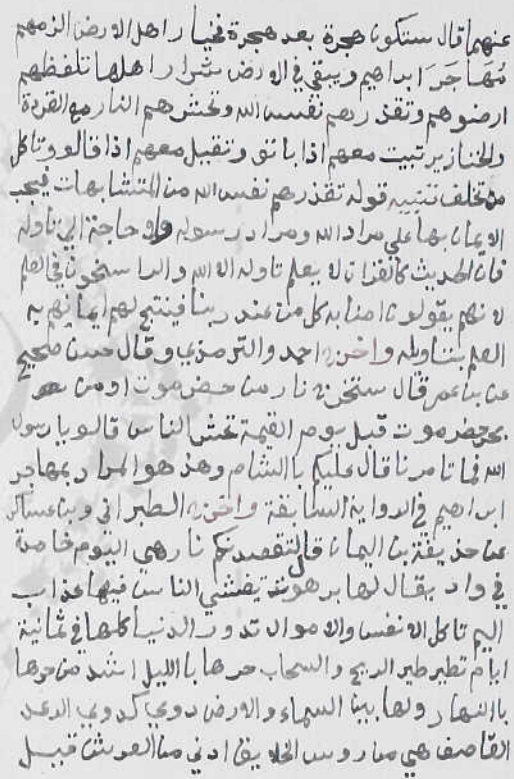 عنهما قال ستكون هجرة بعد هجرة فخيار اهل الارض الزمهم
مُهَاجَرَ ابراهيم ويبقى في الارض شرار اهلها تلفظهم
ارضوهم وتقذرهم نفس الله وتحشرهم النار مع القردة
والخنازير تبيت معهم اذا باتو وتقيل معهم اذا قالو وتاكل
من تخلف تنبيه قوله تقذرهم نفس الله من المتشابهات فيجب
الايمان بها علي مراد الله ومراد رسوله ولا حاجة الي تاوله
فان الحديث كالقران لا يعلم تاوله الا الله والراسخون في العلم
لانهم يقولون امنا به كل من عند ربنا فينتج لهم ايمانهم به
العلم بتناوله واخرج احمد والترمذي وقال حسن صحيح
عن بن عمر قال ستخرج نار من حضرموت او من
بحر حضرموت قبل يوم القيمة تحشر الناس قالو يا رسول
الله فما تامرنا قال عليكم باالشام وهذ هو المراد بمهاجر
ابراهيم في الرواية السابقة واخرج الطبراني وبن عساكر
عن حذيفة بن اليمان قال لتقصدنكم نار هي اليوم خامدة
في واد يقال لها برهوت يغشي الناس فيها عذاب
اليم تاكل الانفس والاموال تدور الدنيا كلها في ثمانية
ايام تطير طير الريح والسحاب حرها باالليل اشد من حرها
باالنهار ولها بين السماء والارض دوي كدوي الرعد
القاصف هي من روس الخلايق ادني من العرش قيل